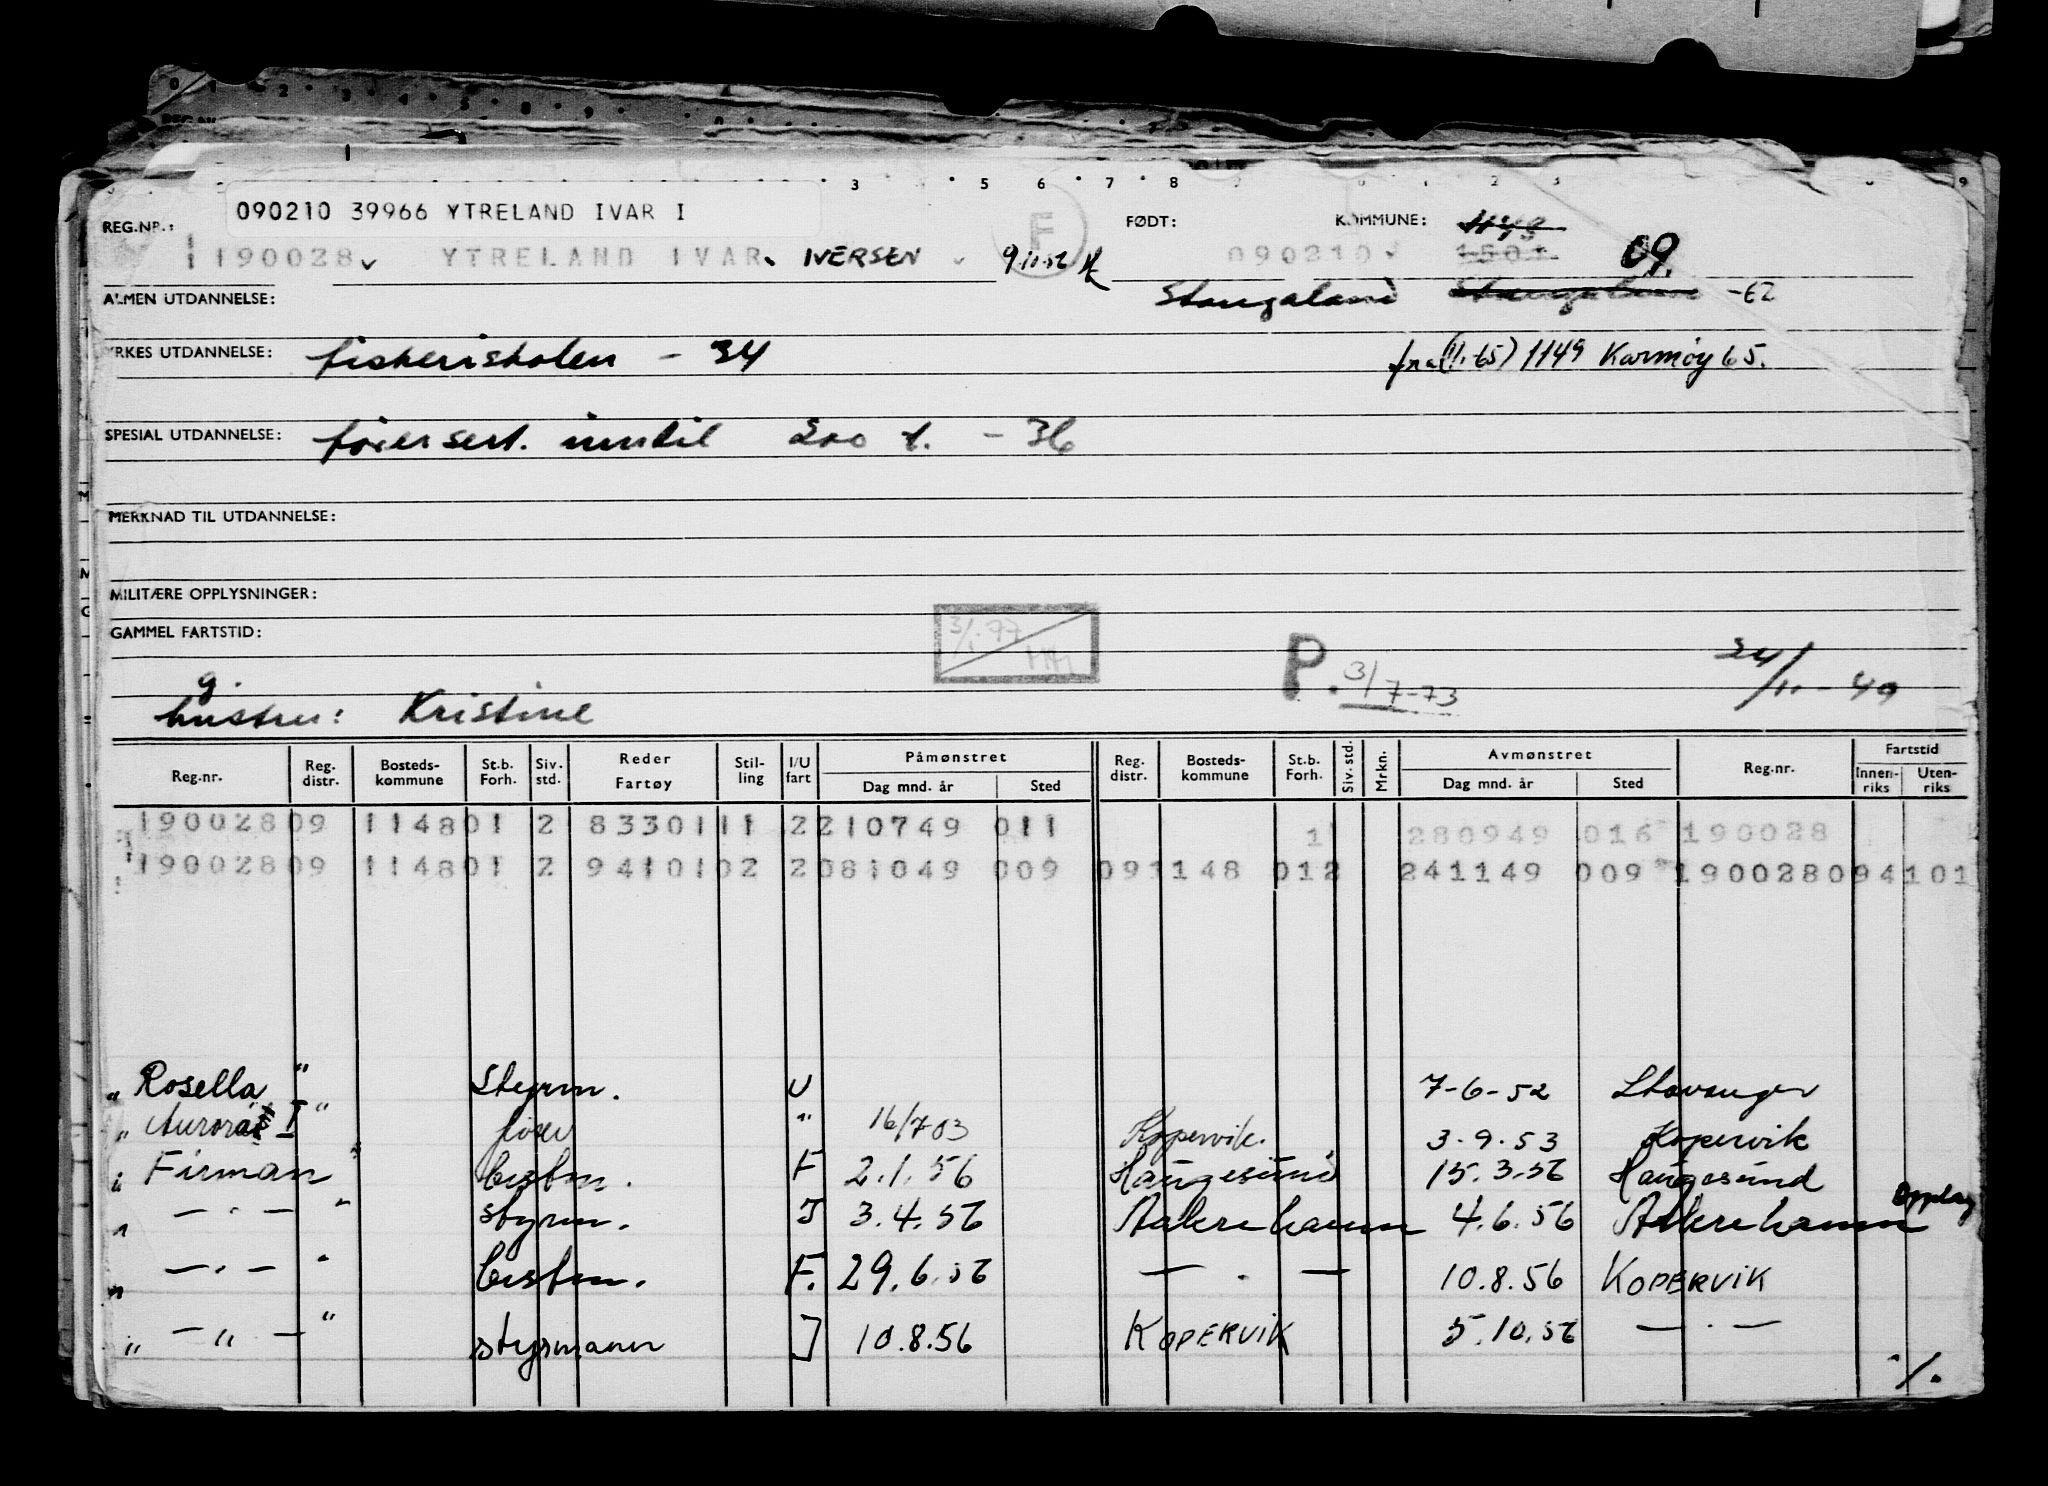 090210 39966 YTRELAND IVAR I
REG.NR.: 190028 YTRELAND IVAR IVERSEN F FØDT: 090210 KOMMUNE: 1501 09.
ALMEN UTDANNELSE: Stangaland Stangaland -62
YRKES UTDANNELSE: fiskeriskolen - 34 fra (1/1-65) 1149 Karmøy 65.
SPESIAL UTDANNELSE: førersert. inntil 200 t. - 36
MERKNAD TIL UTDANNELSE:
MILITÆRE OPPLYSNINGER:
GAMMEL FARTSTID: 3/1-77 P. 3/7-73 24/11-49
g.
hustru: Kristine
Reg.nr. Reg. distr. Bosteds-kommune St.b. Forh. Siv. std. Reder Fartøy Stil-ling I/U fart Påmønstret Dag mnd. år Sted Reg. distr. Bosteds-kommune St.b. Forh. Siv. std. Mrkn. Avmønstret Dag mnd. år Sted Reg.nr. Fartstid Innen-riks Uten-riks
190028 09 1148 01 2 83301 11 2 210749 011 1 280949 016 190028
190028 09 1148 01 2 94101 02 2 081049 009 09 1148 01 2 241149 009 190028094101
" Rosella " Styrm. U 7-6-52 Stavanger
" Aurora I " fører " 16/7 03 Kopervik. 3.9.53 Kopervik
" Firman " bestm. F 2.1.56 Haugesund 15.3.56 Haugesund
" — " — " styrm. I 3.4.56 Aakrehamn 4.6.56 Aakrehamn Opplag
" — " — " bestm. F. 29.6.56 — " — 10.8.56 KOPERVIK
" — " — " styrmann I 10.8.56 KOPERVIK 5.10.56 — " —
./.